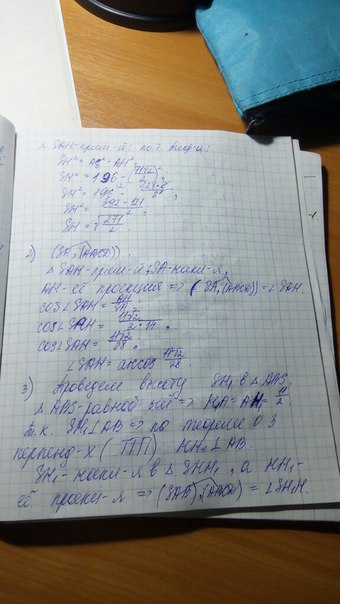 △ SAH-прям-й: по т. Пифа-а:
SH² = AS² - AH²
SH² = 196 - (11√2/2)²;
SH² = 196 -
SH² = (392 - 121)/2;
SH = √(271/2)
2) (SA, (ABCD))
△ SAH-прям-й; SA-накл-я,
AH-её проекция => (SA, (ABCD)) = ∠SAH.
cos∠SAH = AH/SA
cos∠SAH = 11√2/2·14;
cos∠SAH = 11√2/28;
∠SAH = arccos 11√2/28
3) Проведем высоту SH₁ в △ABS.
△ ABS-равноб-ый => H₁A = AH₁ = 11/2.
Т.к. SH₁⊥AB => по теореме о 3
перпенд-х (ТТП) HH₁⊥AB.
SH₁-накл-я в △SHH₁, а HH₁-
её проекц-я => (SAB), (ABCD) = ∠SH₁H.